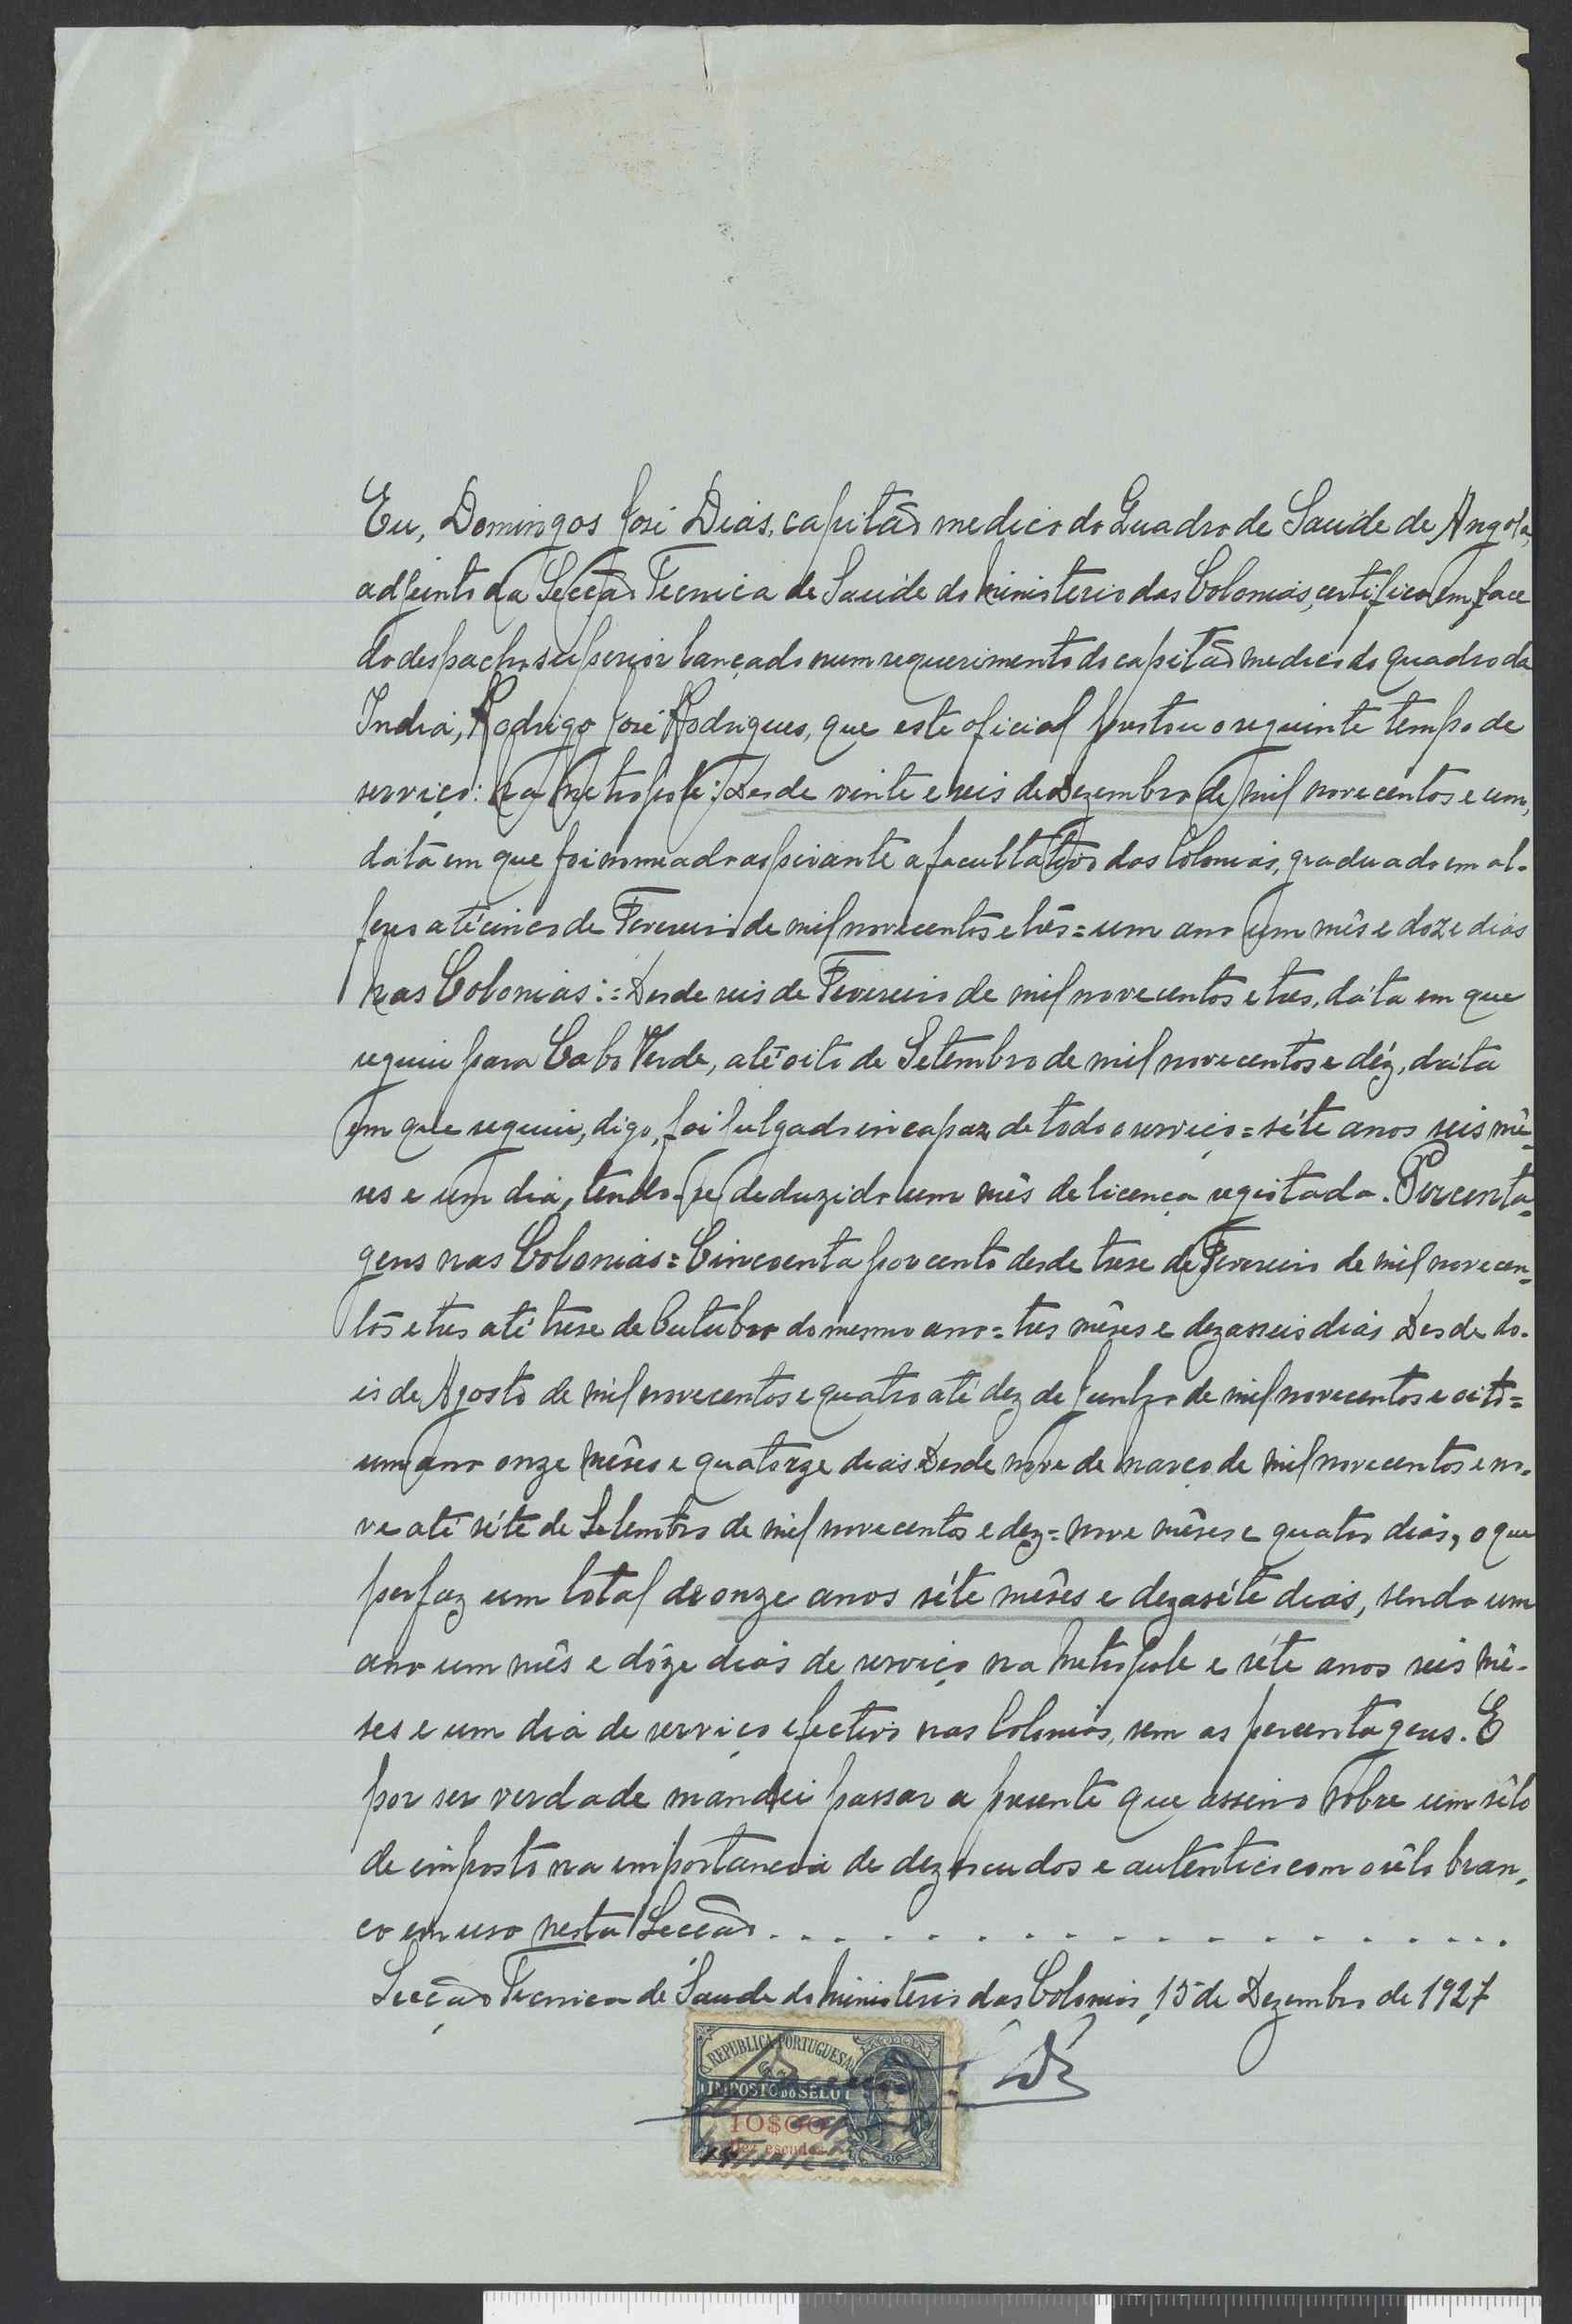 Eu, Domingos José Dias, capitão medico do Quadro de Saude de Angola,
adjunto da Secção Tecnica de Saude do Ministerio das Colonias, certifico em face
do despacho superior lançado num requerimento do capitão medico do quadro da
India, Rodrigo José Rodrigues, que este oficial prestou o seguinte tempo de
serviço: Na Metropole: Desde vinte e seis de Dezembro de mil novecentos e um,
dáta em que foi nomeado aspirante a facultativo das Colonias, graduado em al-
feres até cinco de Fevereiro de mil novecentos e três = um ano um mês e doze dias
Nas Colonias: = Desde seis de Fevereiro de mil novecentos e tres, dáta em que
seguiu para Cabo Verde, até oito de Setembro de mil novecentos e déz, dáta
em que seguiu, digo, foi julgado incapaz de todo o serviço = séte anos seis mê-
ses e um dia, tendo-se deduzido um mês de licença registada. Percenta-
gens nas Colonias = Cincoenta por cento desde treze de Fevereiro de mil novecen-
tos e tres até treze de Outubro do mesmo ano = tres mêses e dezasseis dias Desde do-
is de Agosto de mil novecentos e quatro até dez de Junho de mil novecentos e oito =
um ano onze mêses e quatorze dias Desde nove de Março de mil novecentos e no-
ve até séte de Setembro de mil novecentos e dez = nove mêses e quatro dias, o que
perfaz um total de onze anos séte mêses e dezaséte dias, sendo um
ano um mês e dôze dias de serviço na Metropole e séte anos seis mê-
ses e um dia de serviço efectivo nas Colonias, sem as percentagens. E
por ser verdade mandei passar a presente que assino sobre um sêlo
de imposto na importancia de dez escudos e autentico com o sêlo bran-
co em uso nesta Secção. . . . . . . . . . . . . . . . .
Secção Tecnica de Saude do Ministerio das Colonias, 15 de Dezembro de 1927
REPUBLICA PORTUGUESA
IMPOSTO DO SÊLO
10$00
Dez escudos